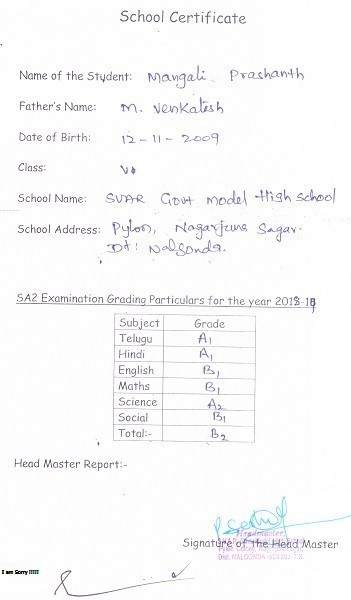 School Certificate
Name of the Student: Mangali Prashanth
Father's Name: M. Venkatesh
Date of Birth: 12-11-2009
Class:
School Name: SVAR Govt Model High School
School Address: Pylon, Nagarjuna Sagar.
Dt: Nalgonda.
SA2 Examination Grading Particulars for the year 2018-19
Subject Grade
Telugu A1
Hindi A1
English B1
Maths B1
Science A2
Social B1
Total:- B2
Head Master Report:-
Headmaster
Signature of The Head Master
Dist. NALGONDA
I am Sorry !!!!!